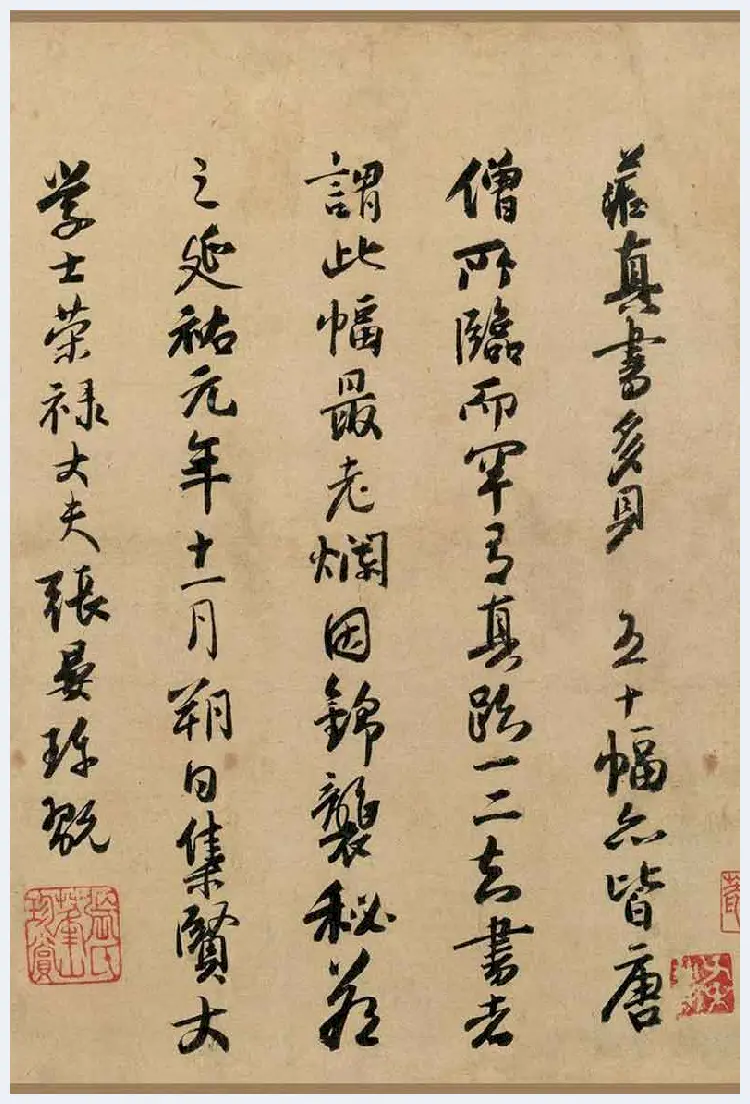 藏真書多見五十幅亦皆唐
僧所臨而罕有真跡一二知書者
謂此幅最老爛因錦襲秘藏
之延祐元年十一月朔日集賢大
學士荣禄大夫張晏珎翫